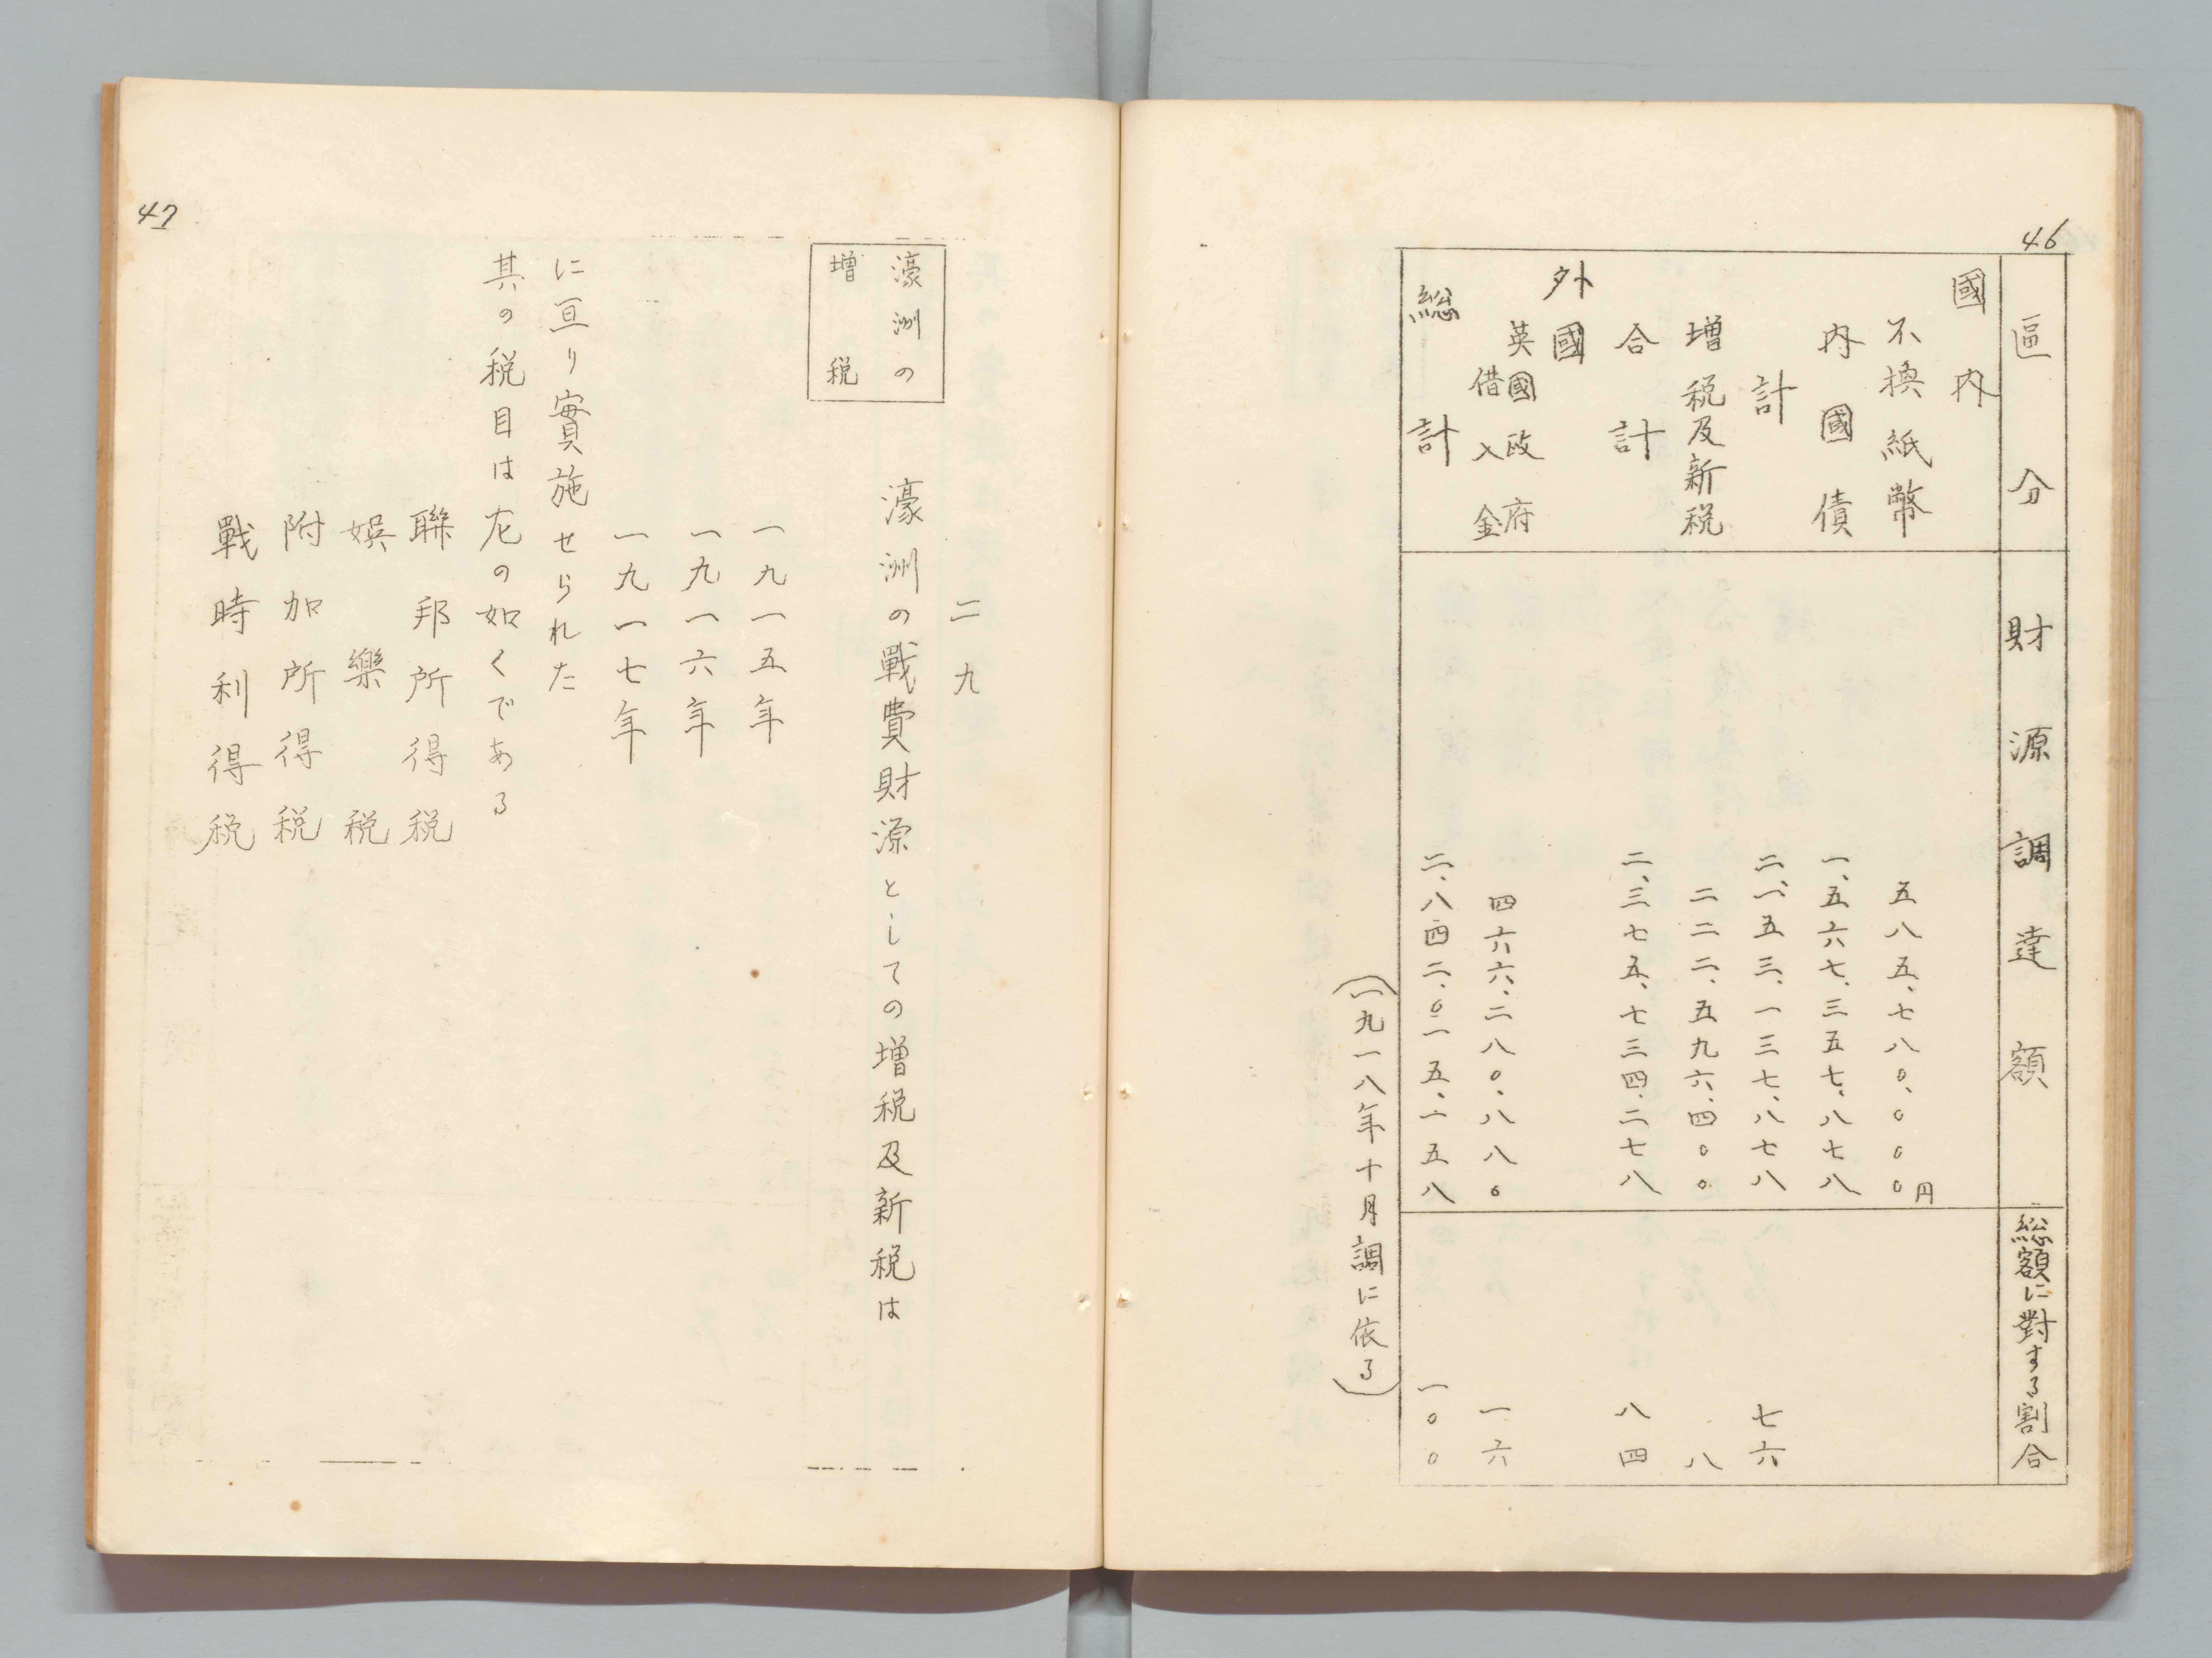 46
區分 財源調達額 総額に對する割合
國内
不換紙幣 五八五、七八〇、〇〇〇円
内國債 一、五六七、三五七、八七八
計 二、一五三、一三七、八七八 七六
増税及新税 二二二、五九六、四〇〇 八
合計 二、三七五、七三四、二七八 八四
外國
英國政府借入金 四六六、二八〇、八八〇 一六
総計 二、八四二、〇一五、一五八 一〇〇
(一九一八年十月調に依る)
47
二九
濠洲の
増税
濠洲の戰費財源としての増税及新税は
一九一五年
一九一六年
一九一七年
に亘り實施せられた
其の税目は左の如くである
聯邦所得税
娯樂税
附加所得税
戰時利得税